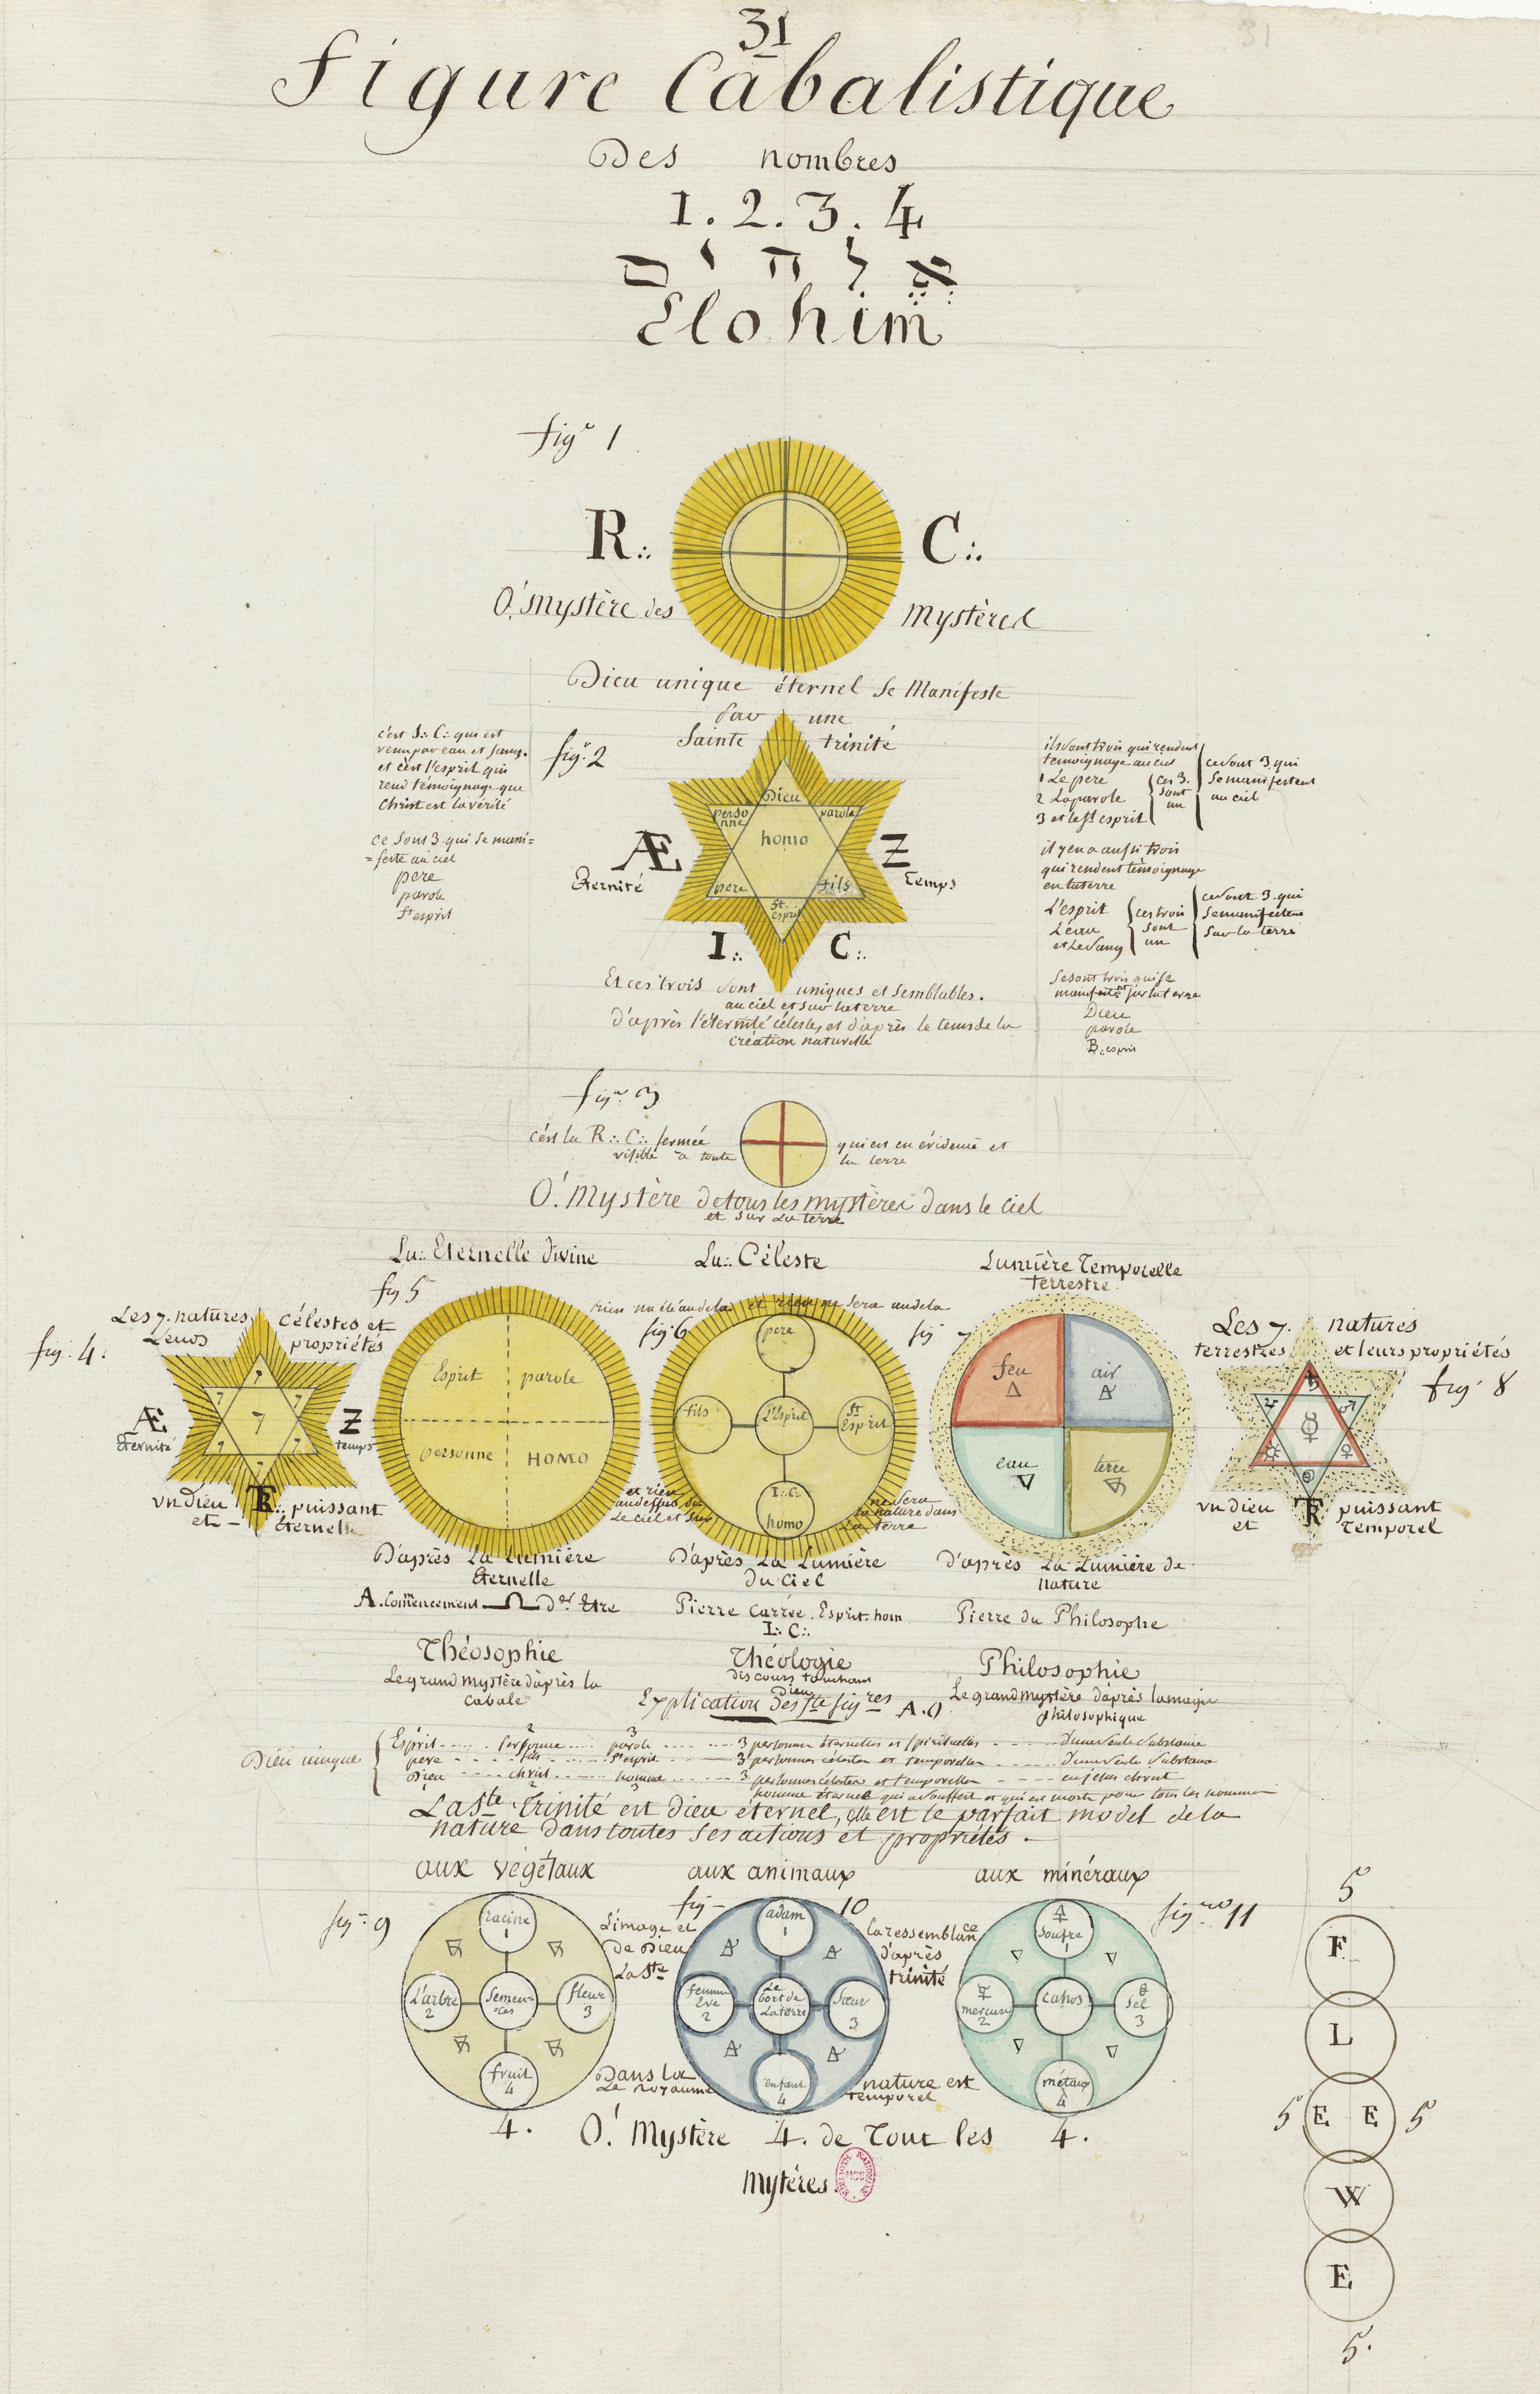 31
31
Figure Cabalistique
Des nombres
1. 2. 3. 4
אלהים
Elohim
figᵉ 1
R∴ C∴
O! Mystère des Mystères
Dieu unique éternel se Manifeste
par une
Sainte trinité
c'est J∴ C∴ qui est
venu par eau et sang.
et c'est l'esprit qui
rend témoignage que
Christ est la vérité
ce sont 3 qui se mani=
=feste au ciel
pere
parole
st esprit
fig. 2
Dieu
perso
nne
parole
homo
pere
fils
St.
esprit
Æ
Eternité
Z
Temps
I∴ C∴
ils sont trois qui rendent
temoignage au ciel
1 Le pere
2 La parole
3 et le st esprit
ces 3.
sont
un
ce sont 3 qui
se manifestent
au ciel
il y en a aussi trois
qui rendent témoignage
en la terre
L'esprit
L'eau
et Le sang
ces trois
sont
un
ce sont 3 qui
se manifestent
sur la terre
se sont trois qui se
manifeste sur la terre
Dieu
parole
Et ces trois sont uniques et semblables.
au ciel et sur la terre
d'après l'éternité céleste, et d'après le tems de la
création naturelle
figᵉ 3
c'est la R∴ C∴ fermée qui est en évidence et
visible à toute la terre
O! Mystère de tous les mystères dans le ciel
et sur la terre
Lu∴ Eternelle divine
Lu∴ Céleste
Lumière Temporelle
terrestre
fig. 4.
Les 7. natures célestes et
Leurs propriétés
7
7
7
7
7
7
7
Æ
Eternité
Z
temps
un Dieu puissant
et – Éternelle
fig 5
Esprit parole
personne HOMO
rien n'a été au dela et rien ne sera au dela
fig. 6
pere
fils
L'Esprit
St
Esprit
I∴ C∴
homo
et rien
au dessus de
Le ciel et sur
ne sera
la nature dans
La terre
fig 7
feu
air
eau
terre
Les 7. natures
terrestres et leurs propriétés
fig. 8
♄
♃
♂
☿
☼
♀
un dieu puissant
et Temporel
D'après La Lumière
Eternelle
D'après La Lumière
Du Ciel
D'après La Lumière de
nature
A. Commencement
Etre
Pierre carrée. Esprit. hom
I∴ C∴
Pierre du Philosophe
Théosophie
Le grand mystère d'après la
cabale
Théologie
discours touchant
Dieu
Philosophie
Le grand mystère d'après la magie
philosophique
Explication des
Dieu unique
Esprit personne parole 3 personnes éternelles et spirituelles d'une seule substance
pere fils st esprit 3 personnes célestes et temporelles d'une seule substance
Dieu christ homme 3 personnes célestes et temporelles en jesus christ
homme éternel qui a souffert et qui est morte pour tous les hommes
La Ste. Trinité est Dieu eternel, elle est le parfait model de la
nature dans toutes ses actions et propriétés.
aux végétaux
aux animaux
aux minéraux
fig. 9
racine
1
L'arbre
2
semen-
ces
fleur
3
fruit
4
4.
L'image et
de Dieu
La Ste
fig – 10
adam
1
femme
Eve
2
Le
bort de
La terre
Sœur
3
enfant
4
la ressemblance
d'après
trinité
Dans la nature est
Le Royaume temporel
fig. 11
soufre
1
mercure
2
cahos
Sel
3
métaux
4
4.
O! Mystère 4. de Tout les
Mytères.
5
F
L
5 E E 5
W
E
5.